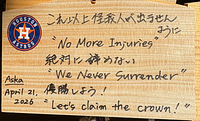 HOUSTON
ASTROS
これ以上怪我人が出ません
ように
"No More Injuries"
絶対に諦めない
"We Never Surrender"
優勝しよう!
"Let's claim the crown!"
Aska
April 21,
2026